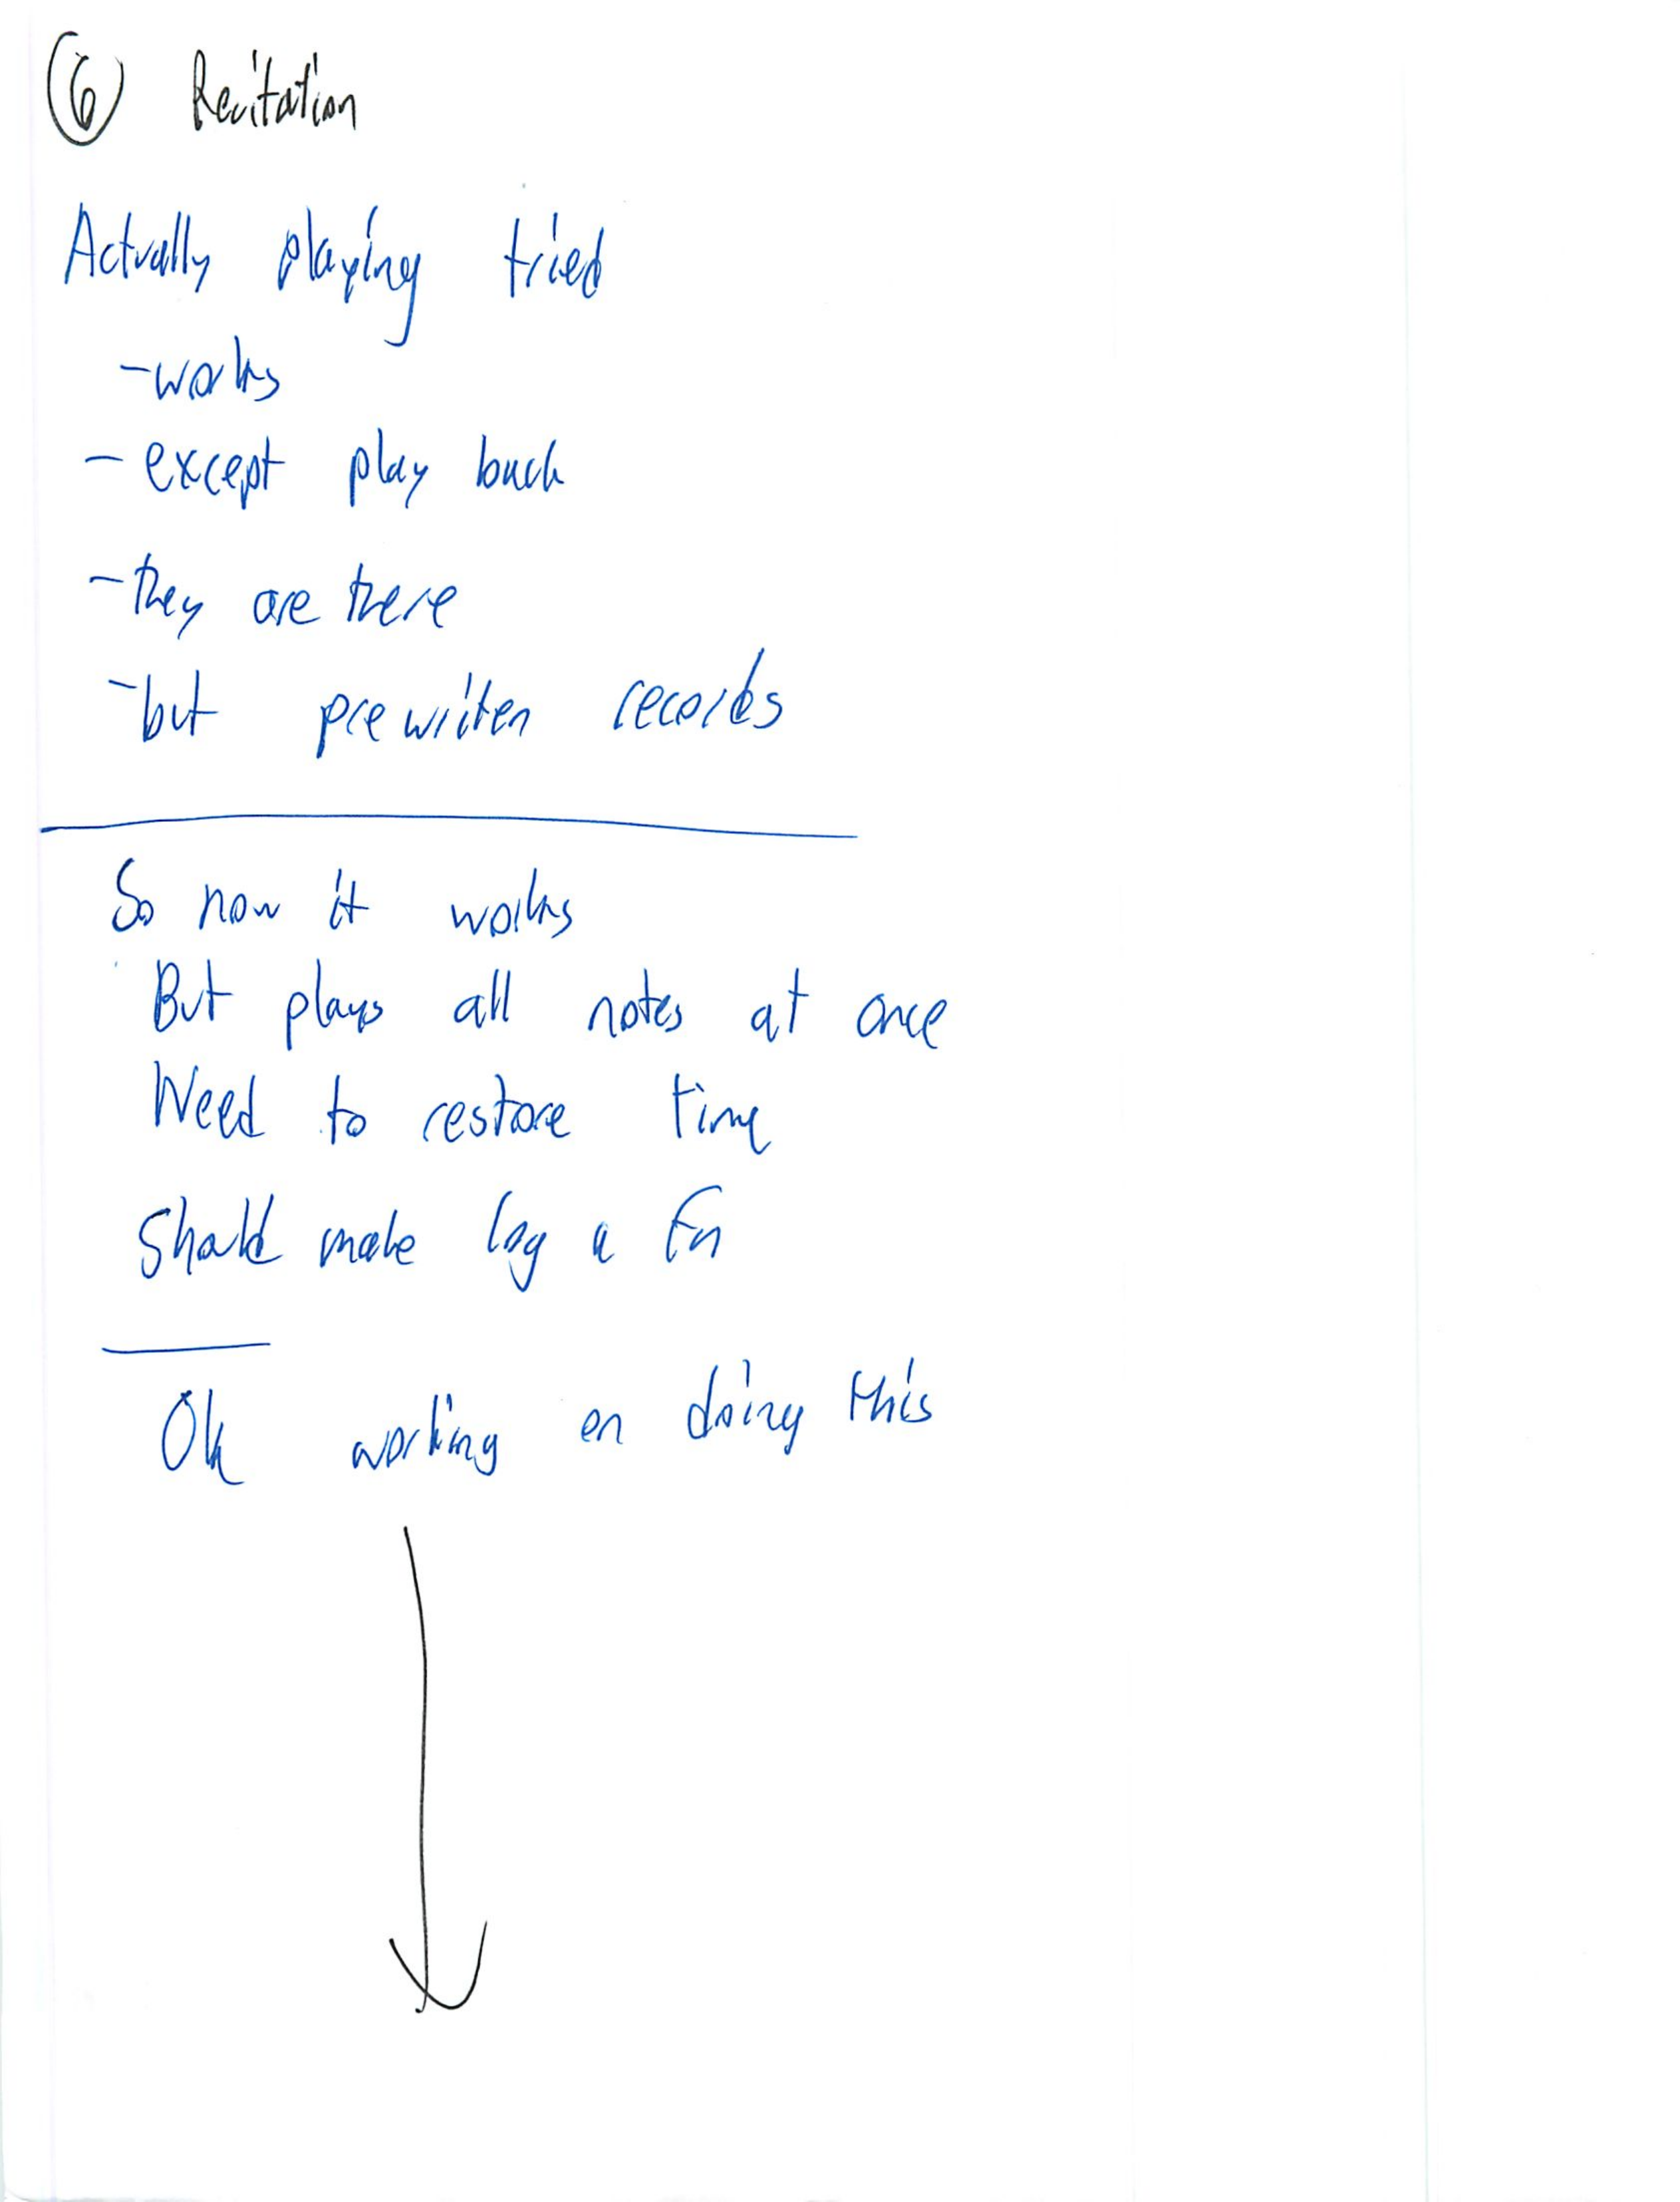 6 Recitation
Actually playing tried
- works
- except play back
- they are there
- but prewriten records
So now it works
But plays all notes at once
Need to restore time
Should make log a fn
Ok working on doing this